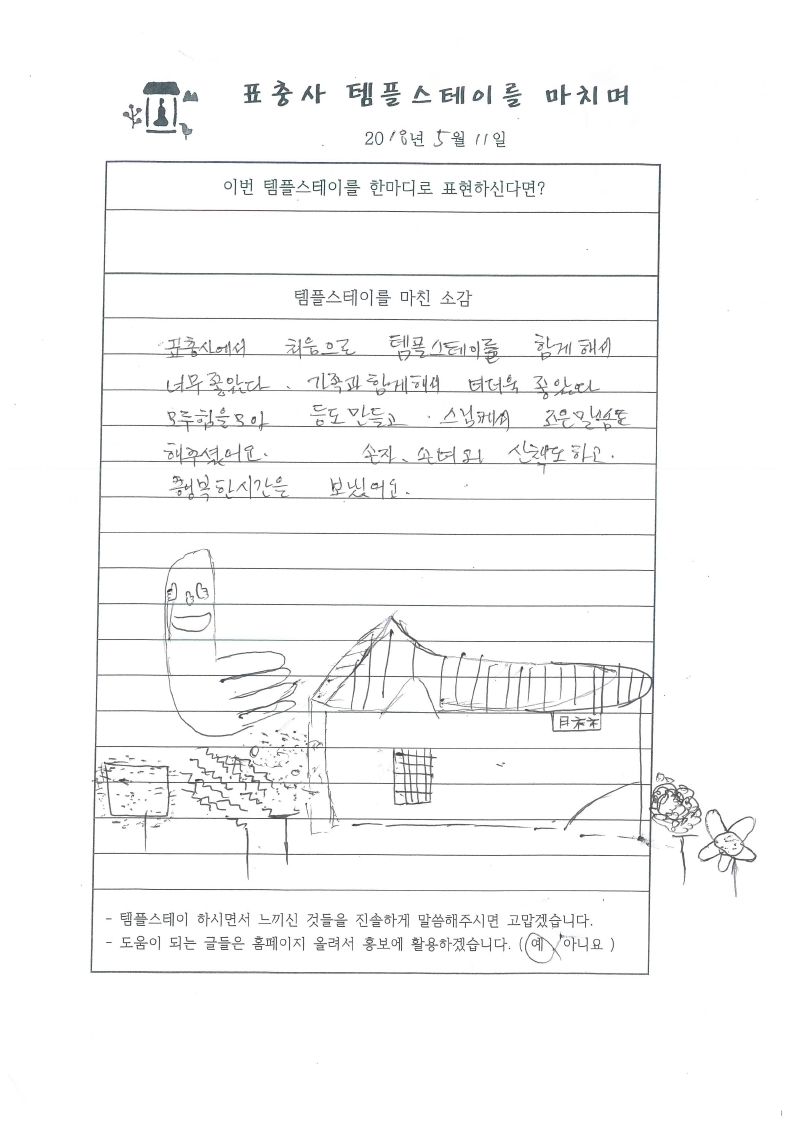 표충사 템플스테이를 마치며
2018년 5월 11일
이번 템플스테이를 한마디로 표현하신다면?
템플스테이를 마친 소감
표충사에서 처음으로 템플스테이를 함게해서
너무좋았다. 가족과함게해서 더더욱 좋았다
모두힘을모아 등도만들고. 스님께서 조은말씀도
해주셨어요. 손자, 손녀와 산책도하고.
행복한시간을 보냈어요.
- 템플스테이 하시면서 느끼신 것들을 진솔하게 말씀해주시면 고맙겠습니다.
- 도움이 되는 글들은 홈페이지 올려서 홍보에 활용하겠습니다. ( 예 / 아니요 )